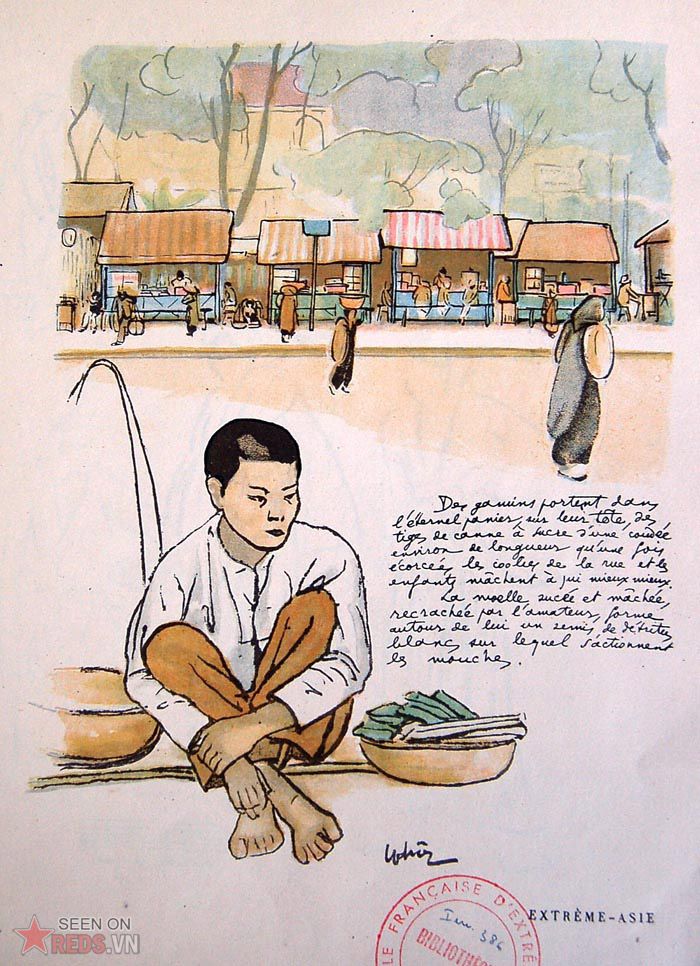 Des gamins portent dans
l'éternel panier, sur leur tête, des
tiges de canne à sucre d'une coudée
environ de longueur qu'une fois
écorcées, les coolies de la rue et les
enfants mâchent à qui mieux mieux.
La moelle sucée et mâchée,
recrachée par l'amateur, forme
autour de lui un semis de détritus
blancs sur lequel s'actionnent
les mouches.
LE FRANÇAISE D'EXTRÊ
Inv. 386
BIBLIOTHÈ
EXTRÊME-ASIE
SEEN ON
REDS.VN